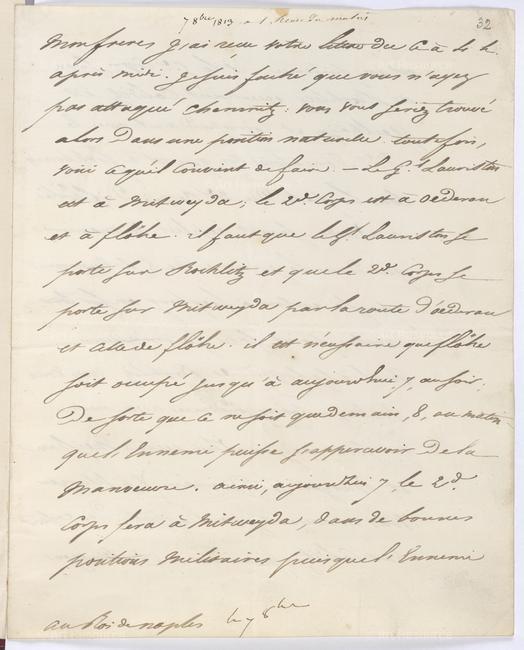 7 8bre 1813 à 1 heure du matin
32
Mon frere, j'ai reçu votre lettre du 6 à 4 h.
après midi. Je suis fâché que vous n'ayez
pas attaqué Chemnitz: vous vous seriez trouvé
alors dans une position naturelle. toutefois,
voici ce qu'il convient de faire. – Le Gal Lauriston
est à Mitweyda; le 2d. Corps est à Oederan
et à flöhe. il faut que le Gal Lauriston se
porte sur Rochlitz et que le 2d. Corps se
porte sur Mitweyda par la route d'oederan
et celle de flöhe. il est nécessaire que flöhe
soit occupé jusqu'à aujourdhui 7, au soir.
De sorte que ce ne soit que demain, 8, au matin
que l'Ennemi puisse s'appercevoir de la
Manoeuvre. ainsi, aujourd'hui 7, le 2d.
Corps sera à Mitweyda, dans de bonnes
positions Militaires puisque l'Ennemi
au Roi de naples le 7 8bre